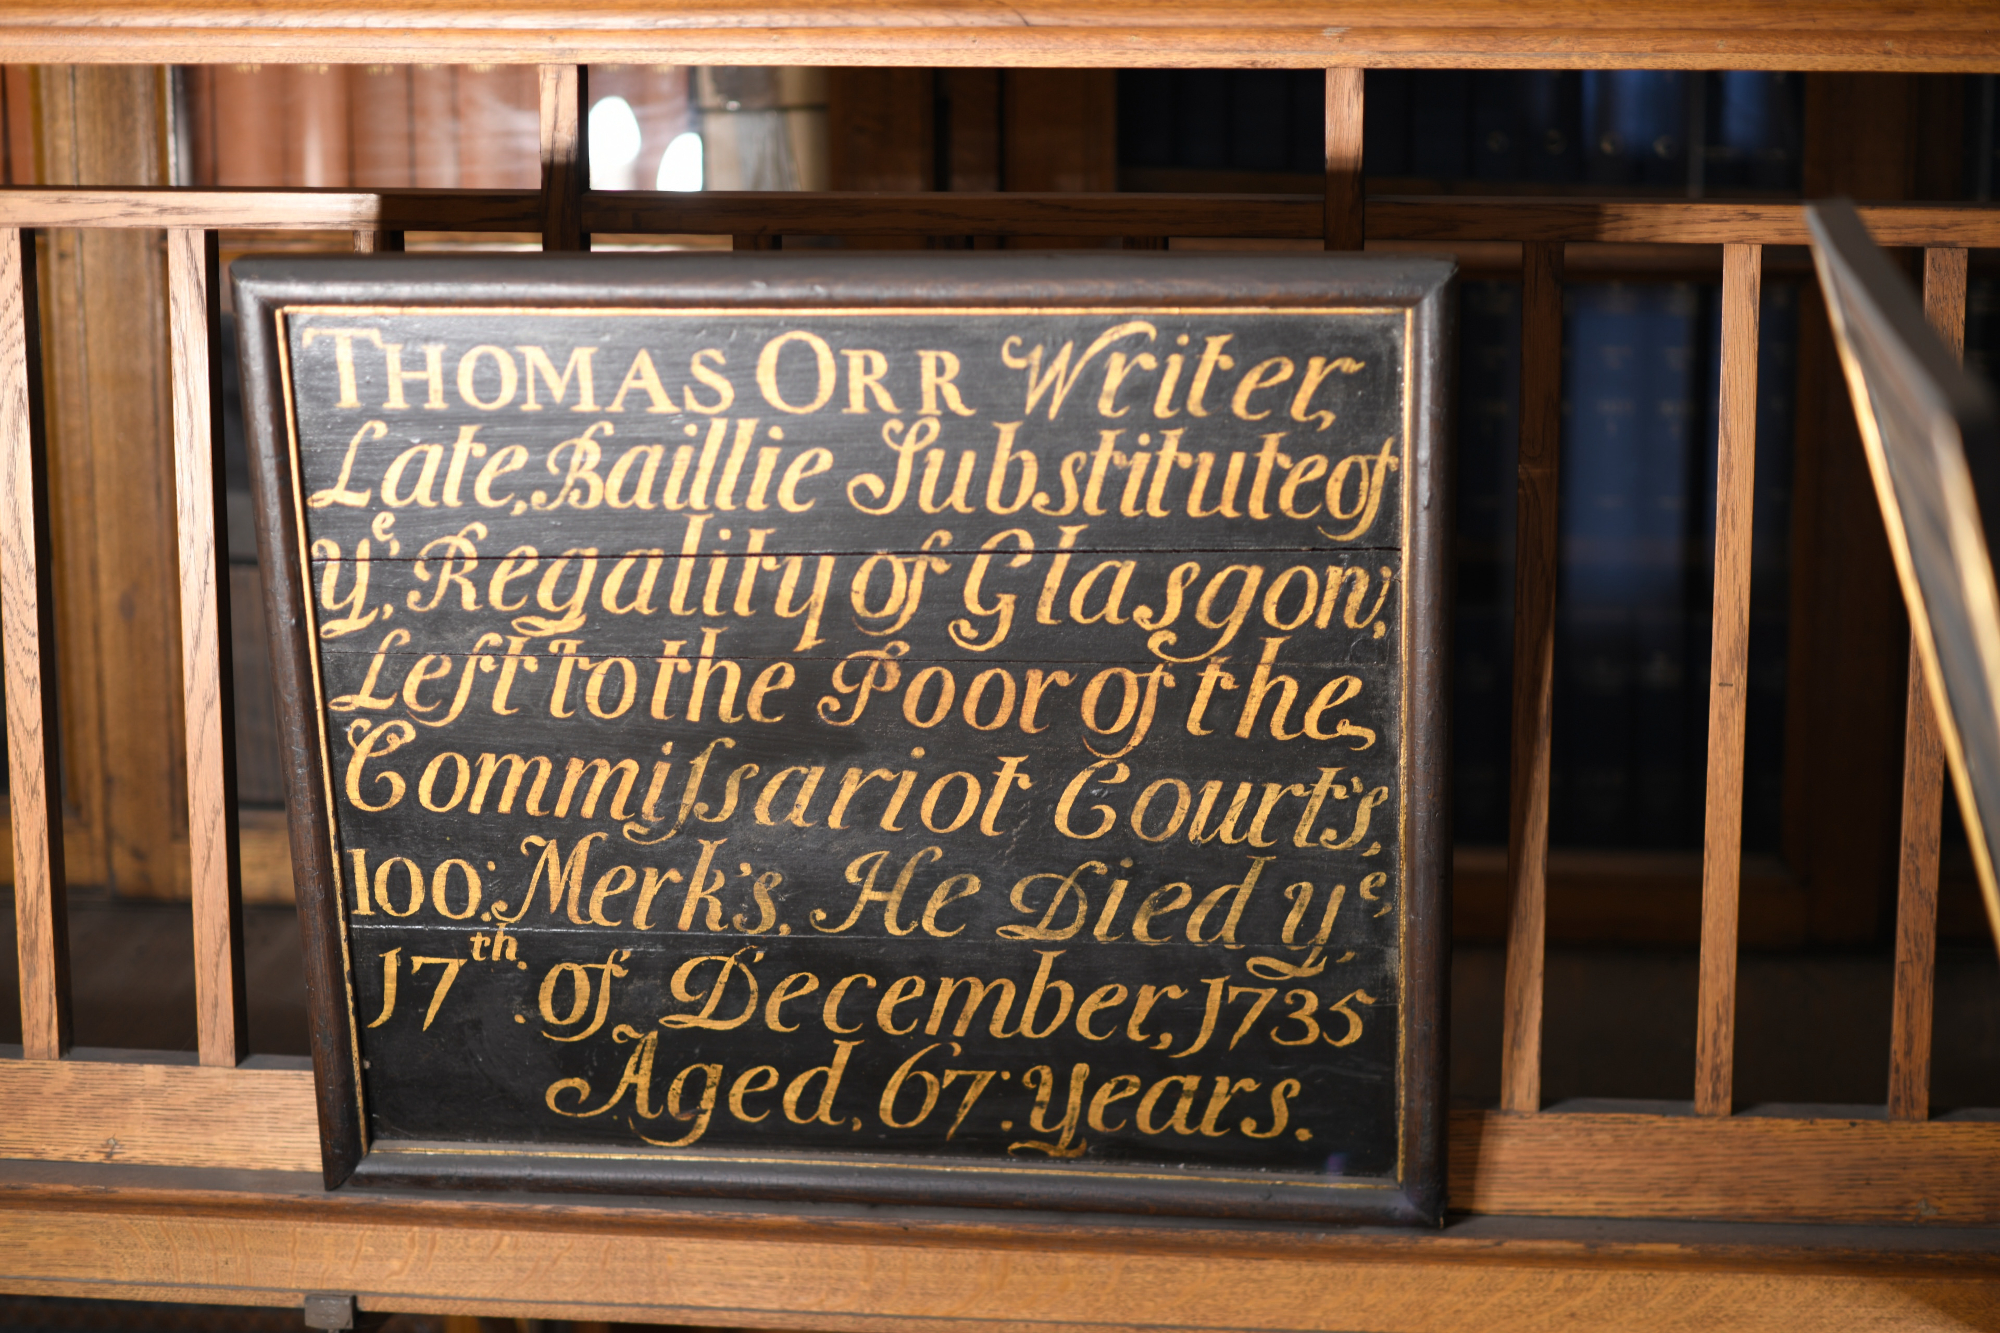 THOMAS ORR Writer,
Late, Baillie Substitute of
yᵉ, Regality of Glasgow,
Left to the Poor of the
Commiſsariot Court's,
100: Merk's, He Died yᵉ
17th. of December, 1735
Aged, 67: Years.